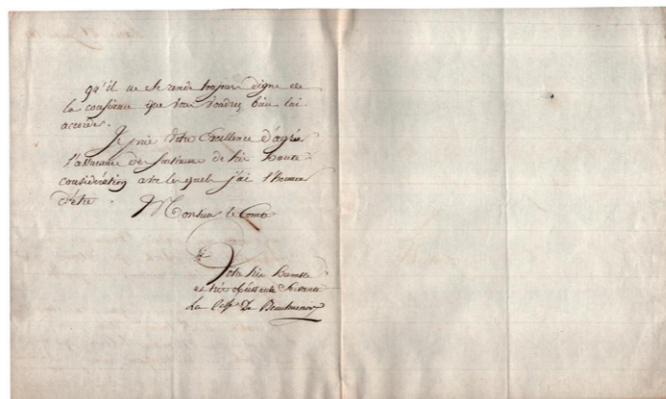 qu'il ne se rende toujours digne de
la confiance que vous voudrez bien lui
accorder.
Je prie Votre Excellence d'agréer
l'assurance des sentimens de très haute
considération avec lesquels j'ai l'honneur
d'être
Monsieur le Comte
Votre très humble
et très obéissante Servante
La Ctsse De